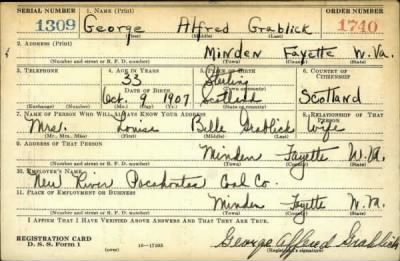 SERIAL NUMBER 1. NAME (Print) ORDER NUMBER
1309 George Alfred Grablick 1740
(First) (Middle) (Last)
2. ADDRESS (Print)
Minden Fayette W. Va.
(Number and street or R. F. D. number) (Town) (County) (State)
3. TELEPHONE 4. AGE IN YEARS 5. PLACE OF BIRTH 6. COUNTRY OF CITIZENSHIP
33 Sterling
DATE OF BIRTH (Town or county)
Oct. 9 1907 Scotland Scotland
(Exchange) (Number) (Mo.) (Day) (Yr.) (State or country)
7. NAME OF PERSON WHO WILL ALWAYS KNOW YOUR ADDRESS 8. RELATIONSHIP OF THAT PERSON
Mrs. Louise Belle Grablick wife
(Mr., Mrs., Miss) (First) (Middle) (Last)
9. ADDRESS OF THAT PERSON
Minden Fayette W. Va.
(Number and street or R. F. D. number) (Town) (County) (State)
10. EMPLOYER'S NAME
New River Pocahontas Coal Co.
11. PLACE OF EMPLOYMENT OR BUSINESS
Minden Fayette W. Va.
(Number and street or R. F. D. number) (Town) (County) (State)
I AFFIRM THAT I HAVE VERIFIED ABOVE ANSWERS AND THAT THEY ARE TRUE.
REGISTRATION CARD
D. S. S. Form 1 (over) 16—17105 George Alfred Grablick
(Registrant's signature)